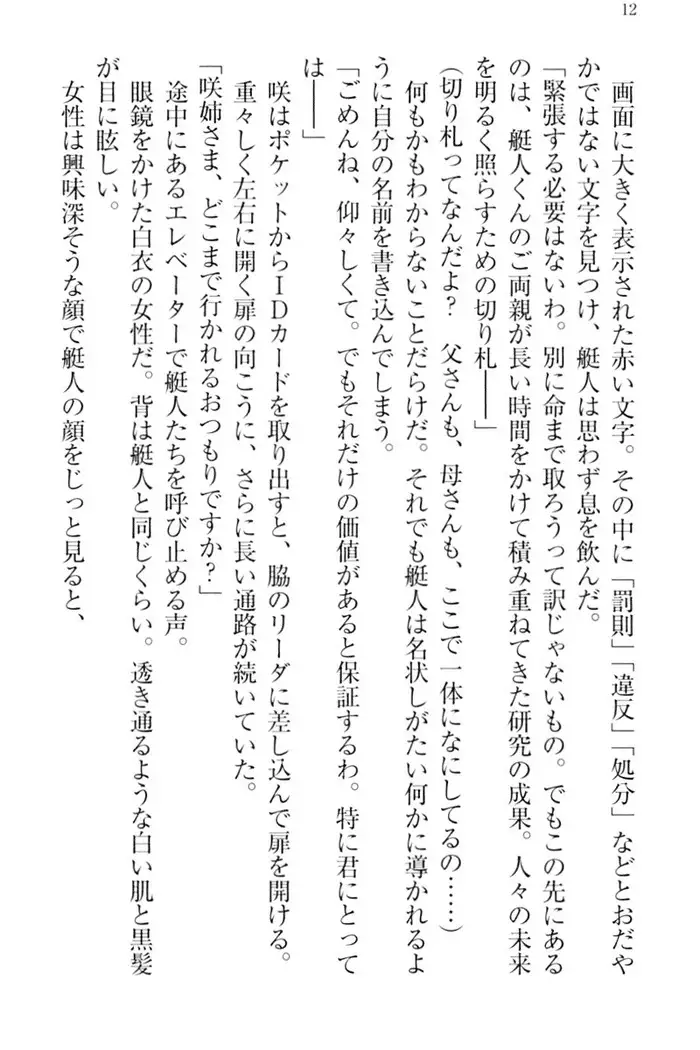 12
画面に大きく表示された赤い文字。その中に「罰則」「違反」「処分」などとおだや
かではない文字を見つけ、艇人は思わず息を飲んだ。
「緊張する必要はないわ。別に命まで取ろうって訳じゃないもの。でもこの先にある
のは、艇人くんのご両親が長い時間をかけて積み重ねてきた研究の成果。人々の未来
を明るく照らすための切り札――」
(切り札ってなんだよ？　父さんも、母さんも、ここで一体になにしてるの……)
何もかもわからないことだらけだ。それでも艇人は名状しがたい何かに導かれるよ
うに自分の名前を書き込んでしまう。
「ごめんね、仰々しくて。でもそれだけの価値があると保証するわ。特に君にとって
は――」
咲はポケットからＩＤカードを取り出すと、脇のリーダに差し込んで扉を開ける。
重々しく左右に開く扉の向こうに、さらに長い通路が続いていた。
「咲姉さま、どこまで行かれるおつもりですか？」
途中にあるエレベーターで艇人たちを呼び止める声。
眼鏡をかけた白衣の女性だ。背は艇人と同じくらい。透き通るような白い肌と黒髪
が目に眩しい。
女性は興味深そうな顔で艇人の顔をじっと見ると、